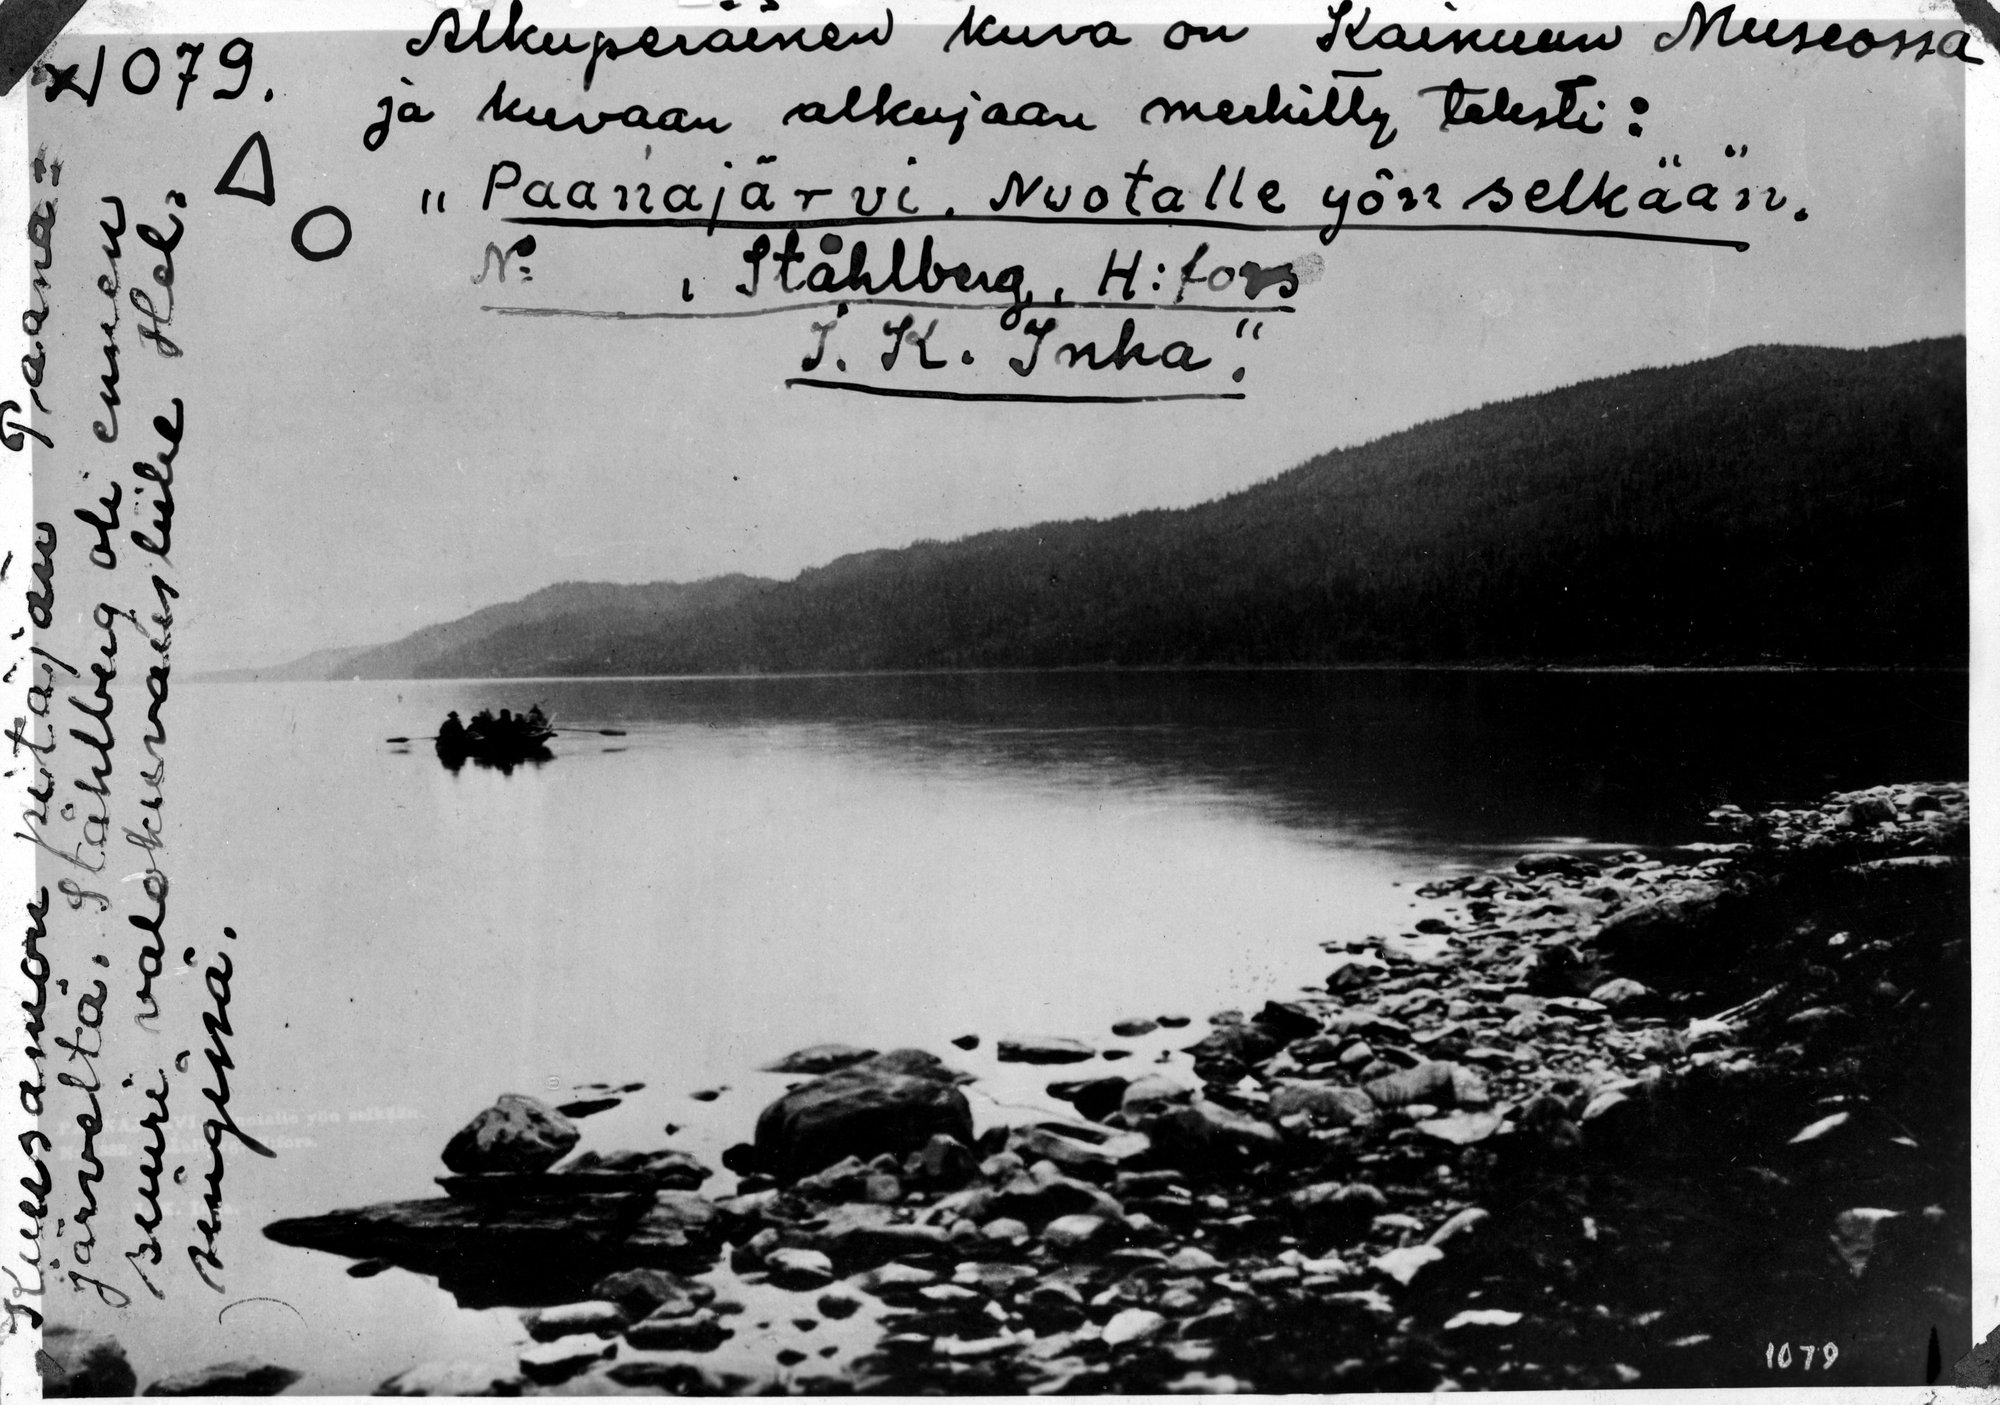 x1079.
Alkuperäinen kuva on Kainuun Museossa
ja kuvaan alkujaan merkitty teksti:
"Paanajärvi. Nuotalle yön selkään.
No: , Ståhlberg, H:fors
I. K. Inha".
Kuusamon pitäjän Paana=
järveltä. Ståhlberg oli ennen
suuri valokuvausliike Hel=
singissä.
yön selkään
fors.
1079